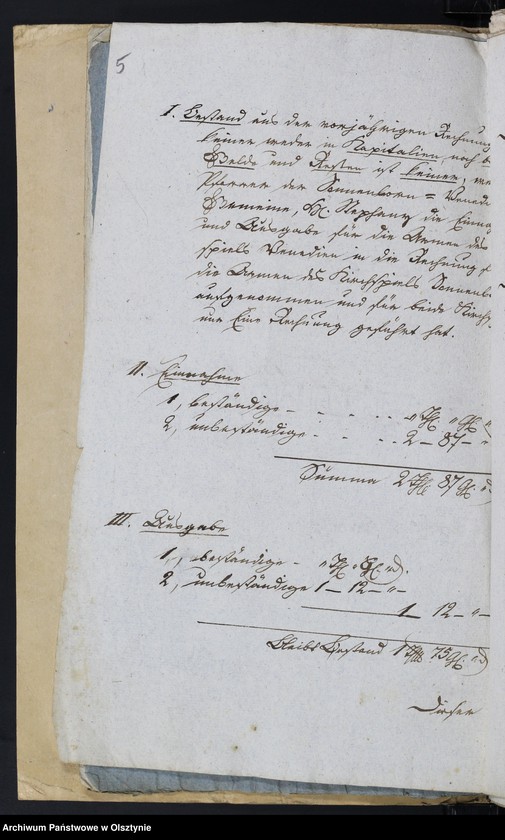 5
I. Bestand aus der vorjährigen Rechnung
keiner weder in Kapitalien noch
Gelde und Resten ist keiner,
Pfarrer der Sonnenborn = Vened
Gemeine, H. Stephany die Einna
und Ausgabe für die Armen des
spiels Venedien in die Rechnung
die Armen des Kirchspiels Sonnenb
aufgenommen und für beide Kirch
nur Eine Rechnung geführt hat.
II. Einnahme
1, beständige - - - - -
2, unbeständige - - - - 2 - 87 -
Summa 2 87
III. Ausgabe
1, beständige -
2, unbeständige 1 - 12 - " -
1 12 - " -
Bleibt Bestand 1 75
Dieser
Archiwum Państwowe w Olsztynie